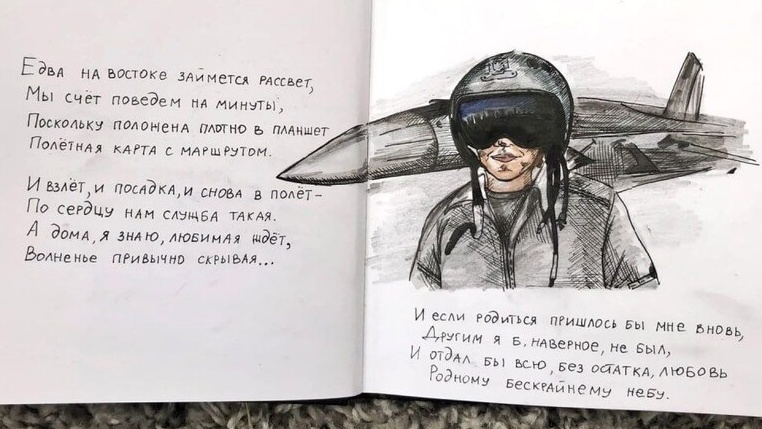 Едва на востоке займется рассвет,
Мы счёт поведем на минуты,
Поскольку положена плотно в планшет
Полётная карта с маршрутом.
И взлёт, и посадка, и снова в полёт –
По сердцу нам служба такая.
А дома, я знаю, любимая ждёт,
Волненье привычно скрывая...
И если родиться пришлось бы мне вновь,
Другим я б, наверное, не был,
И отдал бы всю, без остатка, любовь
Родному бескрайнему небу.